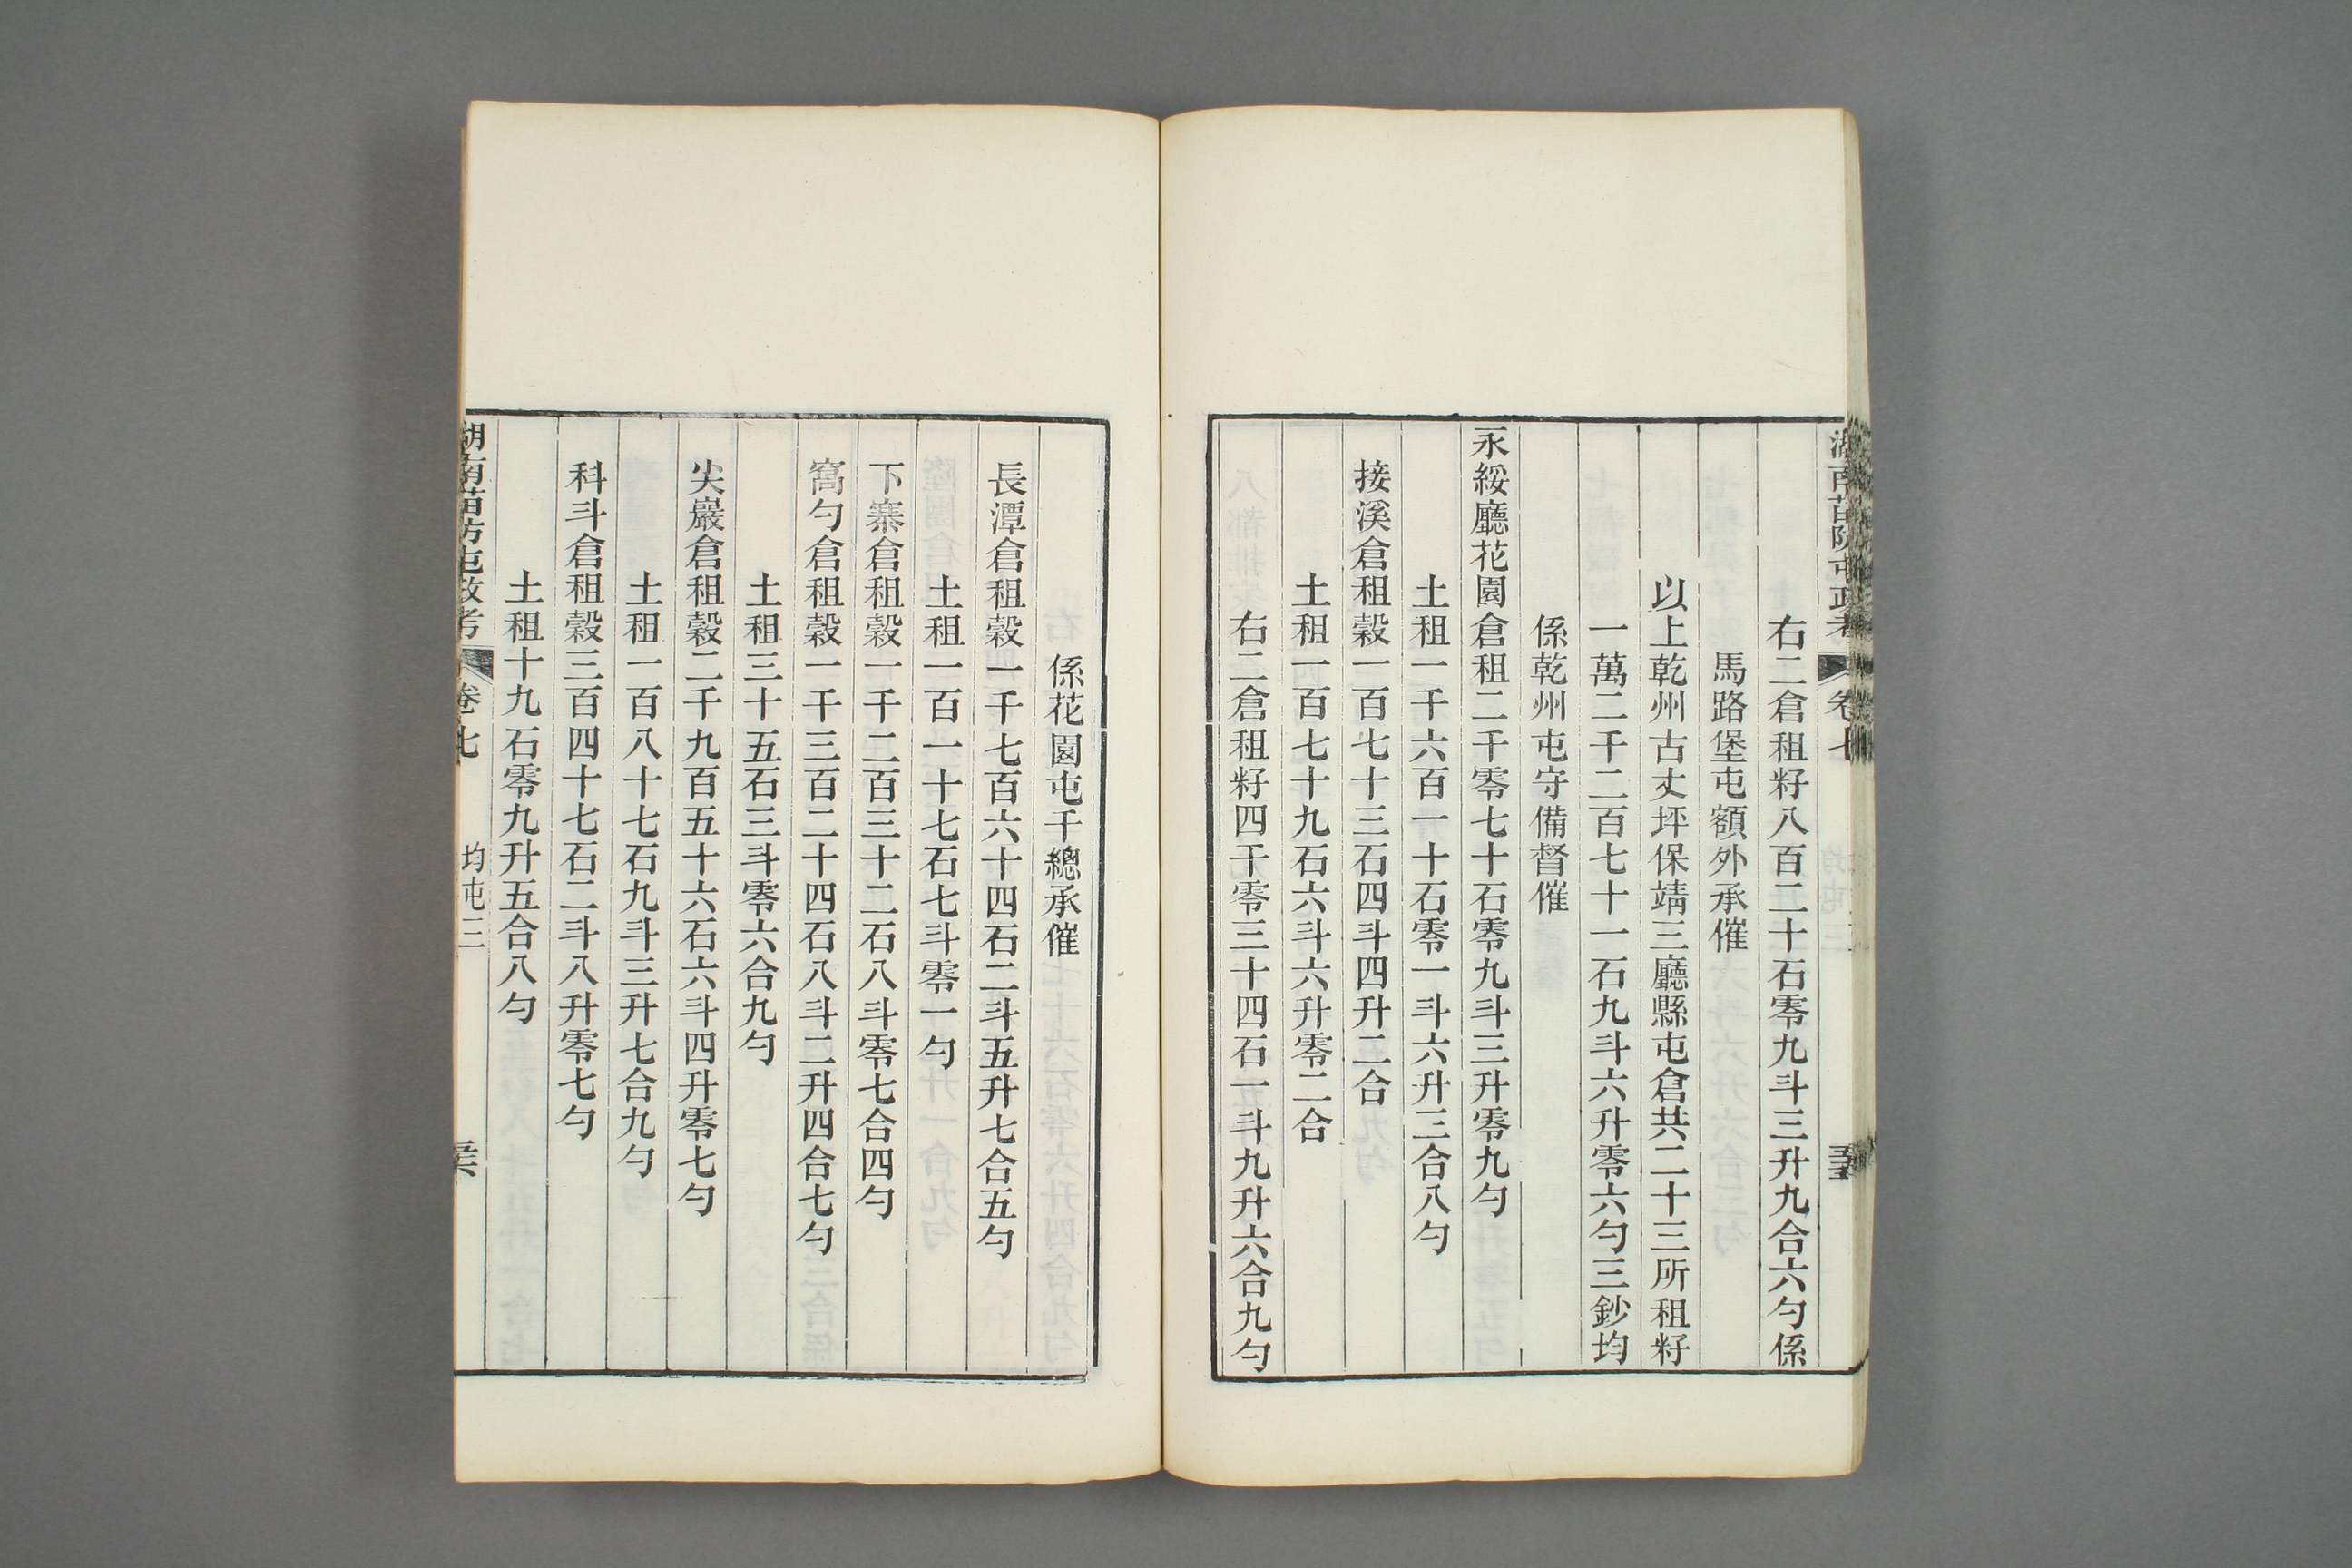 湖南苗防屯政考 卷七 均屯三 五十五
右二倉租籽八百二十石零九斗三升九合六勺係
馬路堡屯額外承催
以上乾州古丈坪保靖三廳縣屯倉共二十三所租籽
一萬二千二百七十一石九斗六升零六勺三鈔均
係乾州屯守備督催
永綏廳花園倉租二千零七十石零九斗三升零九勺
土租一千六百一十石零一斗六升三合八勺
接溪倉租穀一百七十三石四斗四升二合
土租一百七十九石六斗六升零二合
右二倉租籽四千零三十四石一斗九升六合九勺
係花園屯千總承催
長潭倉租穀一千七百六十四石二斗五升七合五勺
土租一百一十七石七斗零一勺
下寨倉租穀一千二百三十二石八斗零七合四勺
窩勺倉租穀一千三百二十四石八斗二升四合七勺
土租三十五石三斗零六合九勺
尖巖倉租穀二千九百五十六石六斗四升零七勺
土租一百八十七石九斗三升七合九勺
科斗倉租穀三百四十七石二斗八升零七勺
土租十九石零九升五合八勺
湖南苗防屯政考 卷七 均屯三